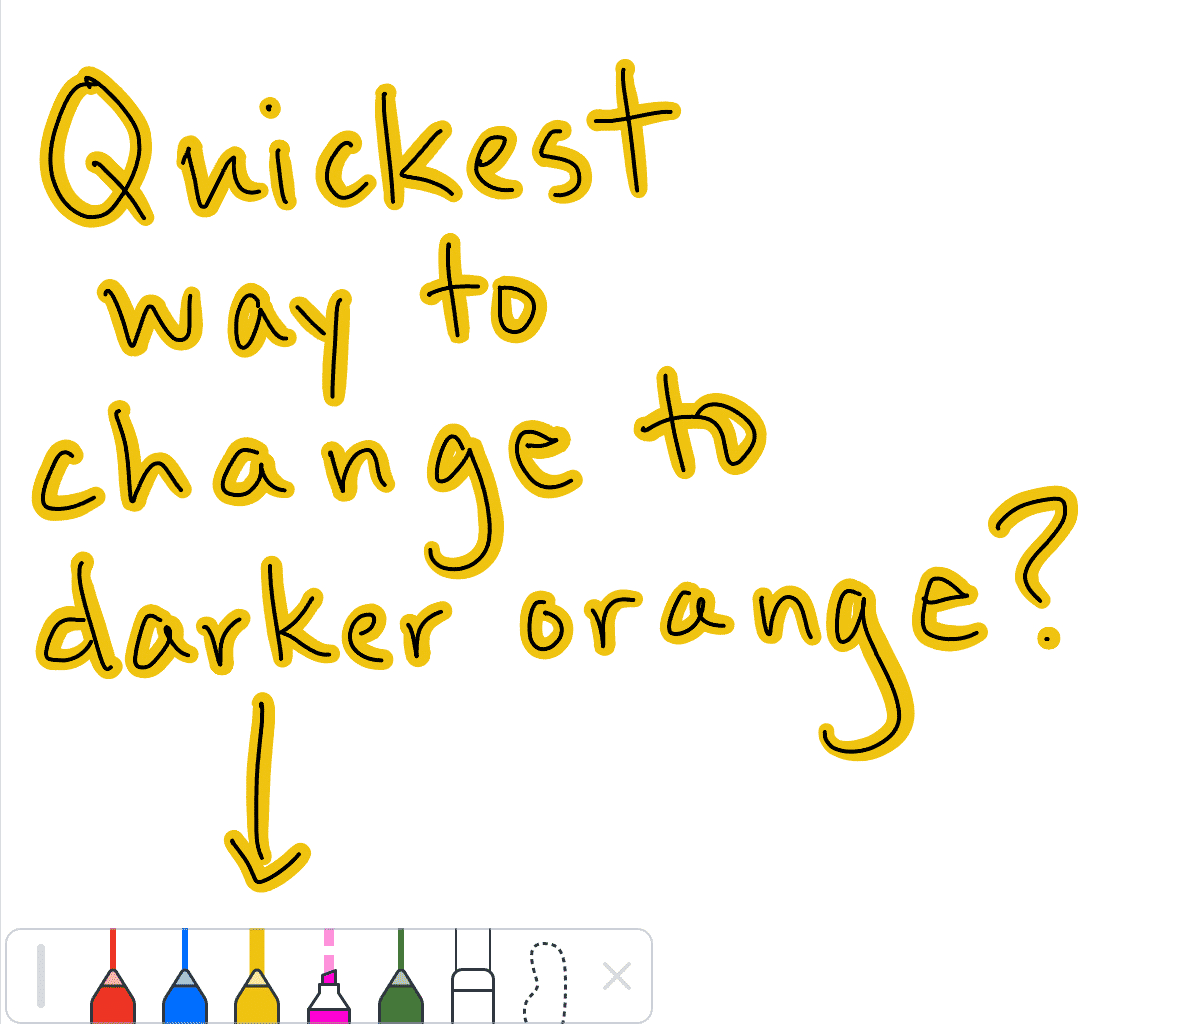 Quickest
way to
change to
darker orange?